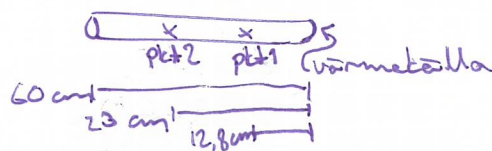 pkt2 pkt1
värmekälla
60 cm
23 cm
12,8cm